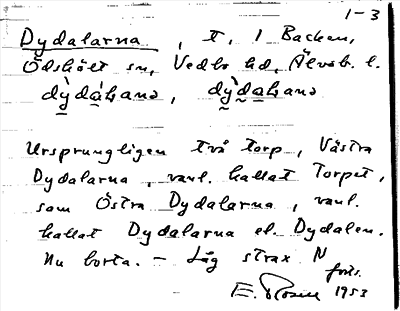 1-3
Dydalarna, t. 1 Backen,
Ödshölt sn, Vedbo hd, Älvsb. l.
dỳdáɫɑnɑ, dỳdaɫɑnɑ
Ursprungligen två torp, Västra
Dydalarna, vanl. kallat Torpet,
som Östra Dydalarna, vanl.
kallat Dydalarna el. Dydalen.
Nu borta. - Låg strax N
forts.
E. Rosell 1953